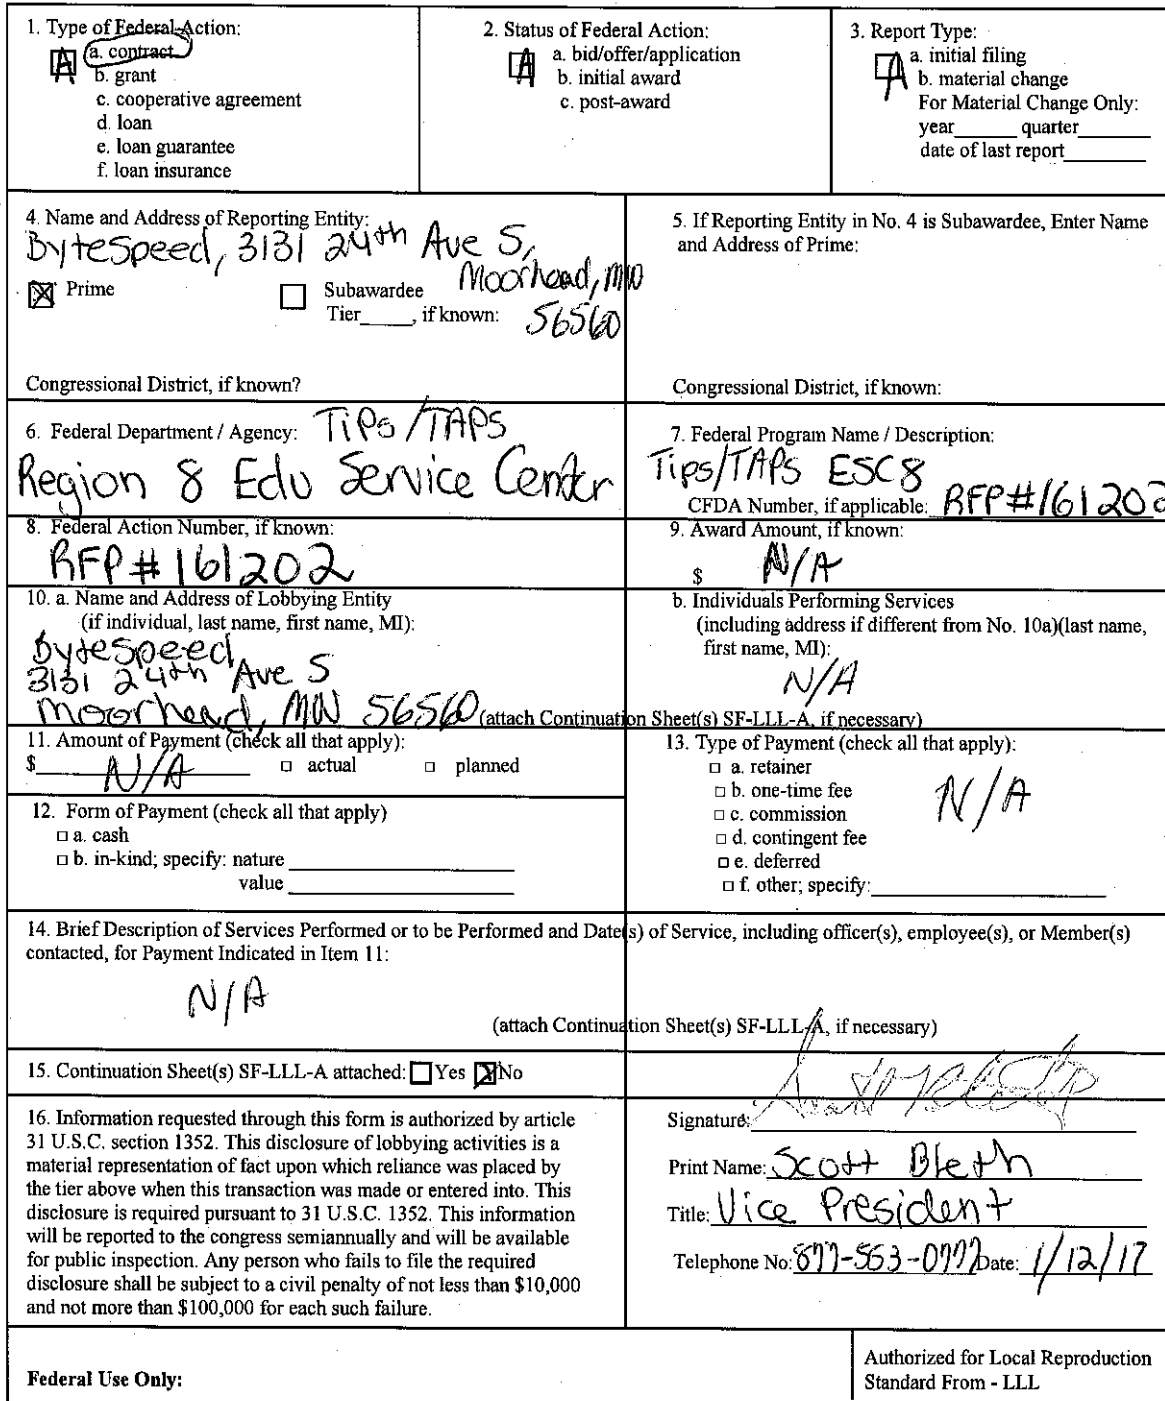 1. Type of Federal Action:
A
a. contract
b. grant
c. cooperative agreement
d. loan
e. loan guarantee
f. loan insurance
2. Status of Federal Action:
A
a. bid/offer/application
b. initial award
c. post-award
3. Report Type:
A
a. initial filing
b. material change
For Material Change Only:
year______ quarter_______
date of last report________
4. Name and Address of Reporting Entity:
ByteSpeed, 3131 24th Ave S,
Moorhead, MN
56560
Prime
Subawardee
Tier_____, if known:
Congressional District, if known?
5. If Reporting Entity in No. 4 is Subawardee, Enter Name
and Address of Prime:
Congressional District, if known:
6. Federal Department / Agency: TiPs/TAPS
Region 8 Edu Service Center
7. Federal Program Name / Description:
Tips/TAPs ESC8
CFDA Number, if applicable: RFP#161202
8. Federal Action Number, if known:
RFP#161202
9. Award Amount, if known:
$ N/A
10. a. Name and Address of Lobbying Entity
(if individual, last name, first name, MI):
ByteSpeed
3131 24th Ave S
Moorhead, MN 56560
b. Individuals Performing Services
(including address if different from No. 10a)(last name,
first name, MI):
N/A
(attach Continuation Sheet(s) SF-LLL-A, if necessary)
11. Amount of Payment (check all that apply):
$ N/A □ actual □ planned
12. Form of Payment (check all that apply)
□ a. cash
□ b. in-kind; specify: nature ____________________
value ____________________
13. Type of Payment (check all that apply):
□ a. retainer
□ b. one-time fee
□ c. commission
□ d. contingent fee
□ e. deferred
□ f. other; specify:____________________
N/A
14. Brief Description of Services Performed or to be Performed and Date(s) of Service, including officer(s), employee(s), or Member(s)
contacted, for Payment Indicated in Item 11:
N/A
(attach Continuation Sheet(s) SF-LLL-A, if necessary)
15. Continuation Sheet(s) SF-LLL-A attached: □ Yes ☒ No
16. Information requested through this form is authorized by article
31 U.S.C. section 1352. This disclosure of lobbying activities is a
material representation of fact upon which reliance was placed by
the tier above when this transaction was made or entered into. This
disclosure is required pursuant to 31 U.S.C. 1352. This information
will be reported to the congress semiannually and will be available
for public inspection. Any person who fails to file the required
disclosure shall be subject to a civil penalty of not less than $10,000
and not more than $100,000 for each such failure.
Signature:
Print Name: Scott Bleth
Title: Vice President
Telephone No: 877-553-0777 Date: 1/12/17
Federal Use Only:
Authorized for Local Reproduction
Standard From - LLL